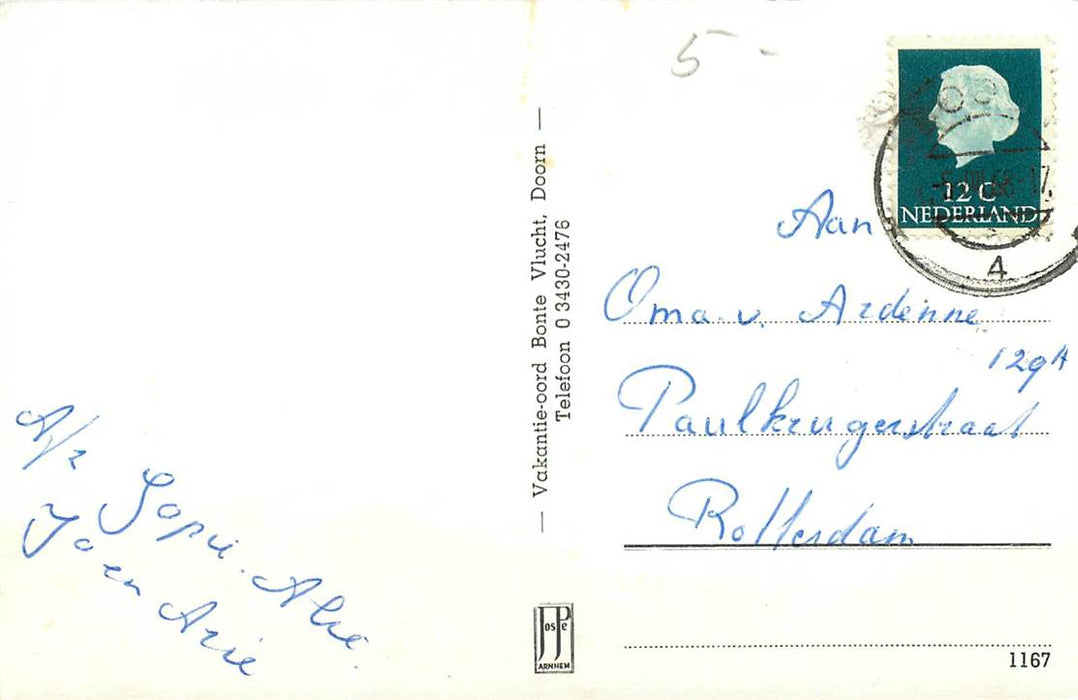 5 -
12 C
NEDERLAND
4
Aan
Oma v. Ardenne
129A
Paulkrugerstraat
Rotterdam
Afz
Sopie. Alie.
Jo en Arie
— Vakantie-oord Bonte Vlucht, Doorn —
Telefoon 0 3430-2476
JosPe
ARNHEM
1167